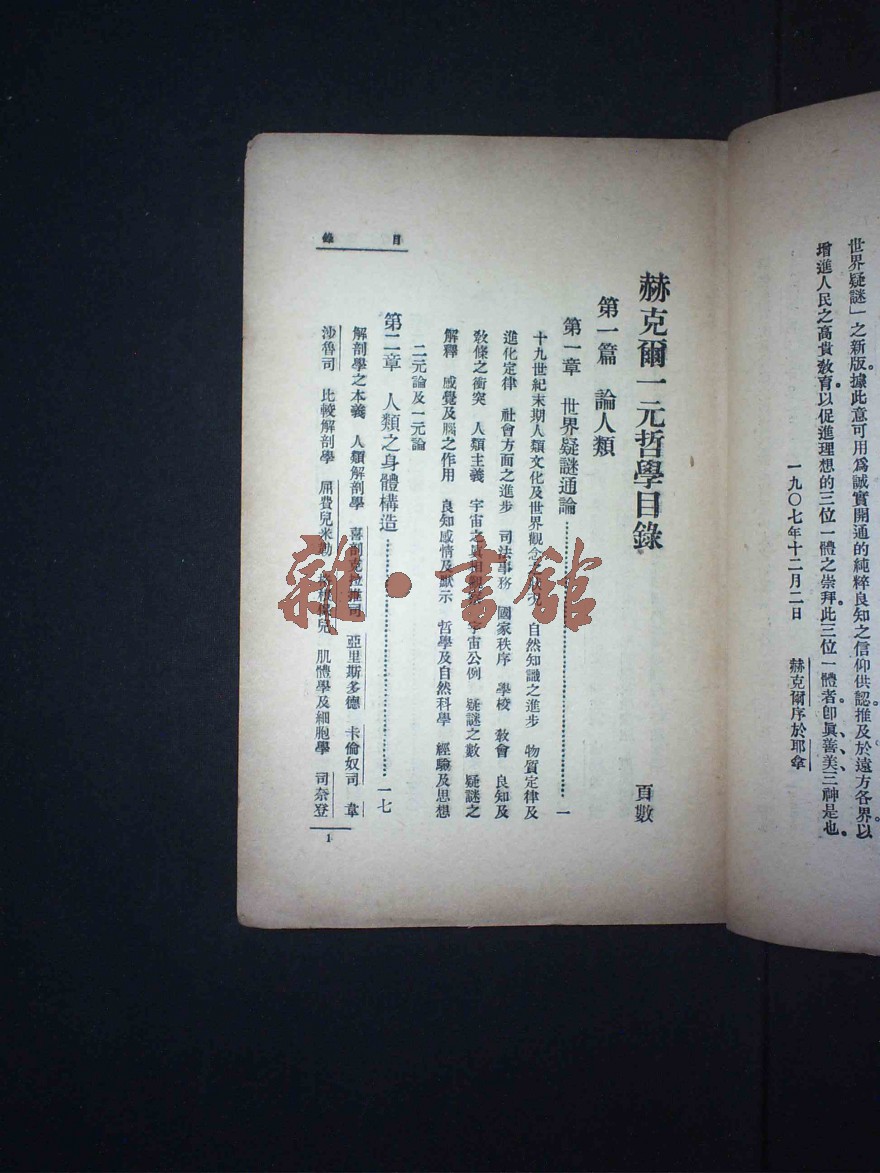 世界疑謎」之新版據此意可用爲誠實開通的純粹良知之信仰供認推及於遠方各界以
增進人民之高貴敎育以促進理想的三位一體之崇拜此三位一體者卽眞善美三神是也。
一九〇七年十二月二日　赫克爾序於耶拿
目錄
赫克爾一元哲學目錄
頁數
第一篇　論人類
第一章　世界疑謎通論……一
十九世紀末期人類文化及世界觀念之狀況　自然知識之進步　物質定律及
進化定律　社會方面之進步　司法事務　國家秩序　學校　敎會　良知及
敎條之衝突　人類主義　宇宙之眞相　宇宙公例　疑謎之數　疑謎之
解釋　感覺及腦之作用　良知感情及默示　哲學及自然科學　經驗及思想
二元論及一元論
第二章　人類之身體構造……一七
解剖學之本義　人類解剖學　喜剖克拉推司　亞里斯多德　卡倫奴司　韋
沙魯司　比較解剖學　屈費兒米勒　兒　肌體學及細胞學　司奈登
1
雜·書館